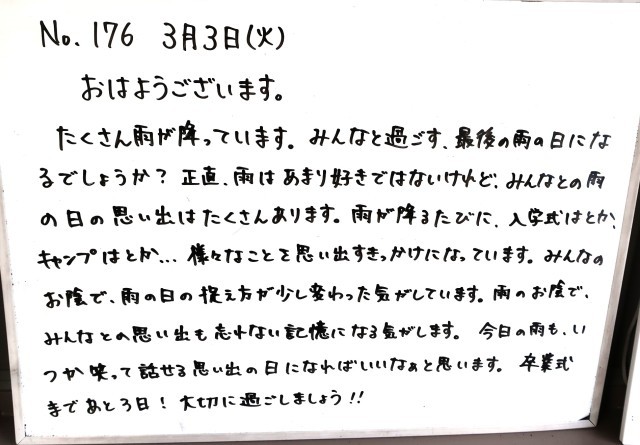 No. 176 3月3日(火)
おはようございます。
たくさん雨が降っています。みんなと過ごす、最後の雨の日にな
るでしょうか？正直、雨はあまり好きではないけれど、みんなとの雨
の日の思い出はたくさんあります。雨が降るたびに、入学式はとか、
キャンプはとか…様々なことを思い出すきっかけになっています。みんなの
お陰で、雨の日の捉え方が少し変わった気がしています。雨のお陰で、
みんなとの思い出も忘れない記憶になる気がします。今日の雨も、い
つか笑って話せる思い出の日になればいいなぁと思います。卒業式
まであと3日！大切に過ごしましょう!!